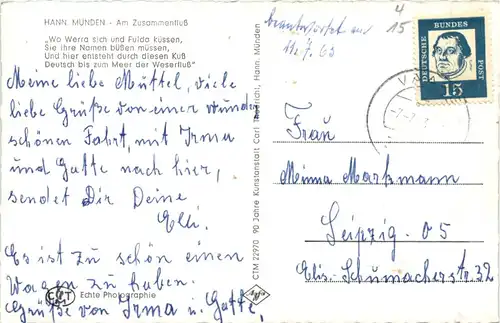 HANN. MÜNDEN - Am Zusammenfluß
"Wo Werra sich und Fulda küssen,
Sie ihre Namen büßen müssen,
Und hier entsteht durch diesen Kuß
Deutsch bis zum Meer der Weserfluß"
Meine liebe Müttel, viele
liebe Grüße von einer wunder
schönen Fahrt, mit Irma
und Gatte nach hier,
sendet Dir Deine
Elli.
Es ist zu schön einen
Wagen zu haben.
Grüße von Irma u. Gatte,
Echte Photographie
CTM 22970 90 Jahre Kunstanstalt Carl Hann. Münden
Agfa
beantwortet am
11.7.63
4
15
DEUTSCHE BUNDES POST
15
Frau
Minna Markmann
Leipzig - O5
Elis. Schumacherstr. 32